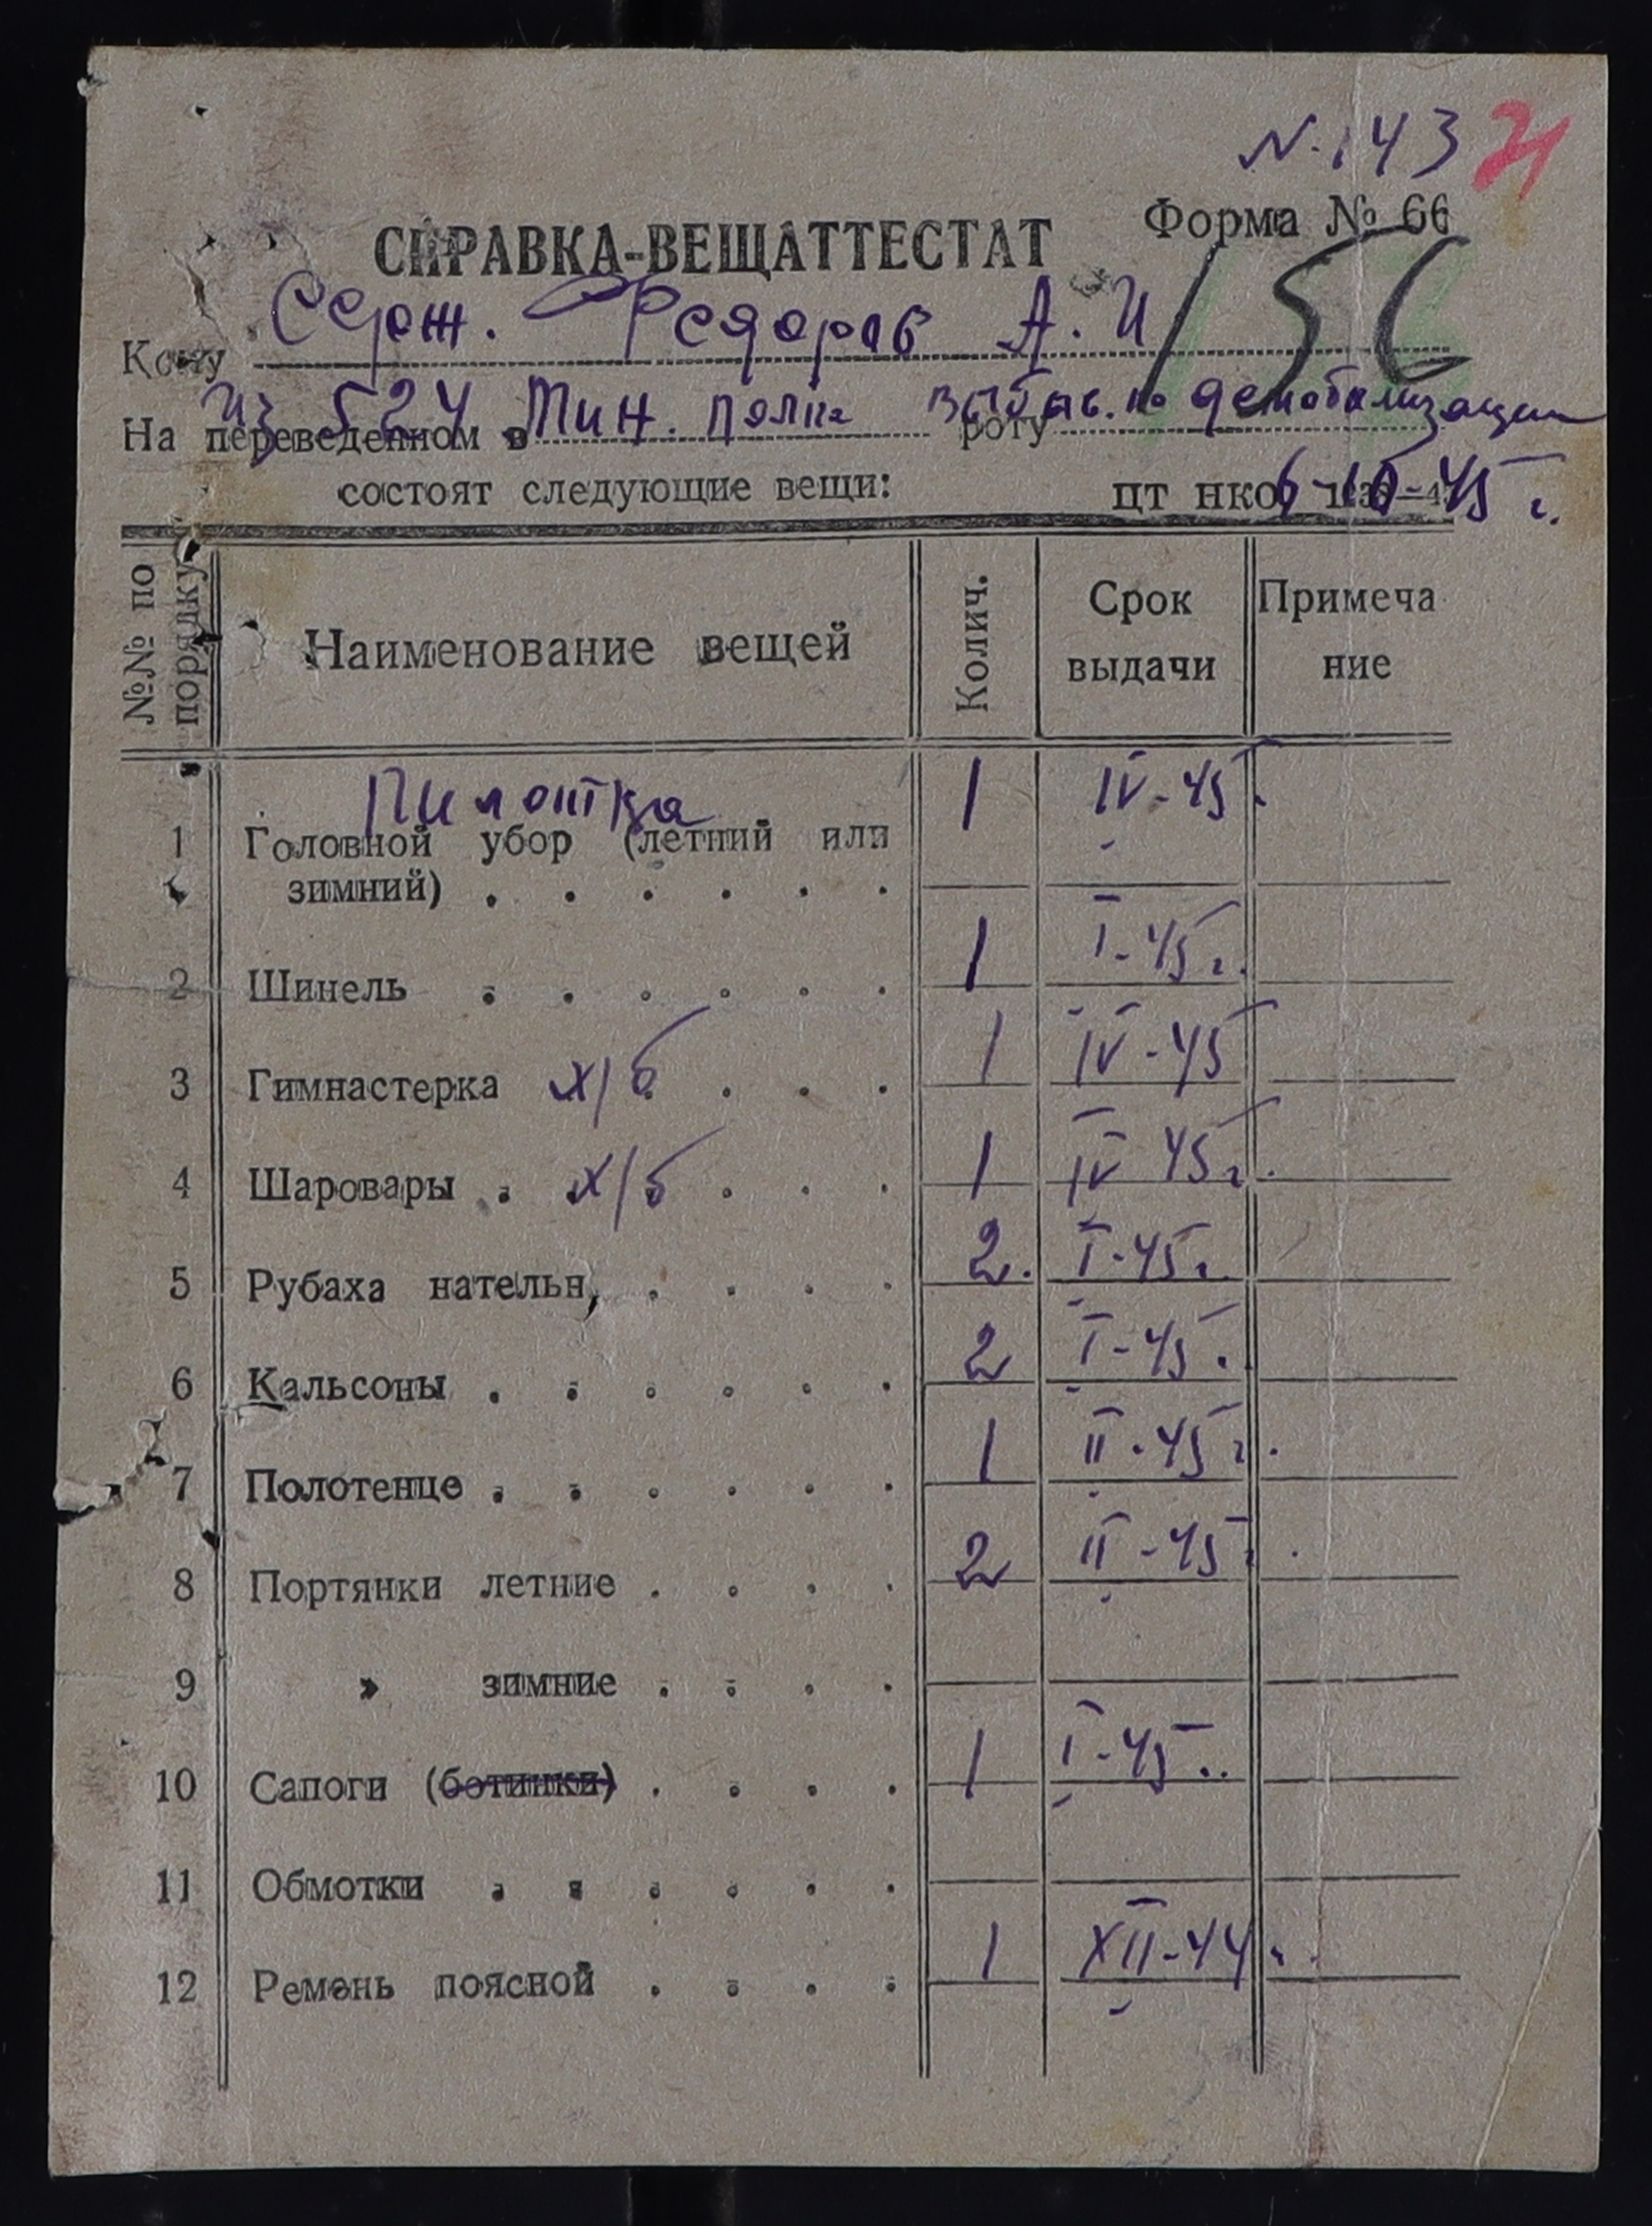 N. 143 21
Форма № 66
СПРАВКА-ВЕЩАТТЕСТАТ
156
Кому Серж. Федоров А. И
Из 524 Мин. полка выбыв. по демобилизации
На переведенном в роту
состоят следующие вещи:
цт нко
6-10-45 г.
№№ по порядку Наименование вещей Колич. Срок выдачи Примечание
Пилотка 1 IV-45
1 Головной убор (летний или
зимний)
2 Шинель 1 I-45 г.
3 Гимнастерка х/б 1 IV-45
4 Шаровары х/б 1 IV 45 г.
5 Рубаха нательн, 2. I-45 г.
6 Кальсоны 2 I-45.
7 Полотенце 1 II-45 г.
8 Портянки летние 2 II-45 г.
9 » зимние
10 Сапоги (ботинки) 1 I-45.
11 Обмотки
12 Ремень поясной 1 XII-44 г.